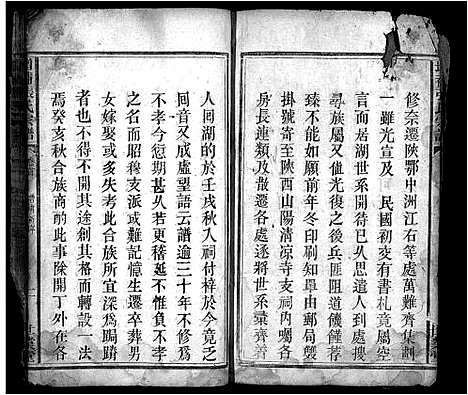 修奈遷陝鄂中洲江右等處萬難齊集劃
一雖光宣及 民國初交有書札竟屬空
言而居湖世系開待巳久思遣人到處搜
尋族屬又值光復之後兵匪阻道饑饉荐
臻不能如願前年冬印刷知單由郵局雙
掛號寄至陝西山陽清凉寺支祠內囑各
房長連類及散遷各處遂將世系彙齊善
人回湖的於壬戌秋入祠付梓於今竟乏
囘音又成虛望語云譜逾三十年不修爲
不孝今愆期甚久若更稽延不特男丁
之名而昭穆支派或難記憶生遷卒葬男
女嫁娶或多失考此合族所宜深爲跼蹐
者也不得不開其途創其格而轉設一法
焉癸亥秋合族商酌此事除開丁外在各